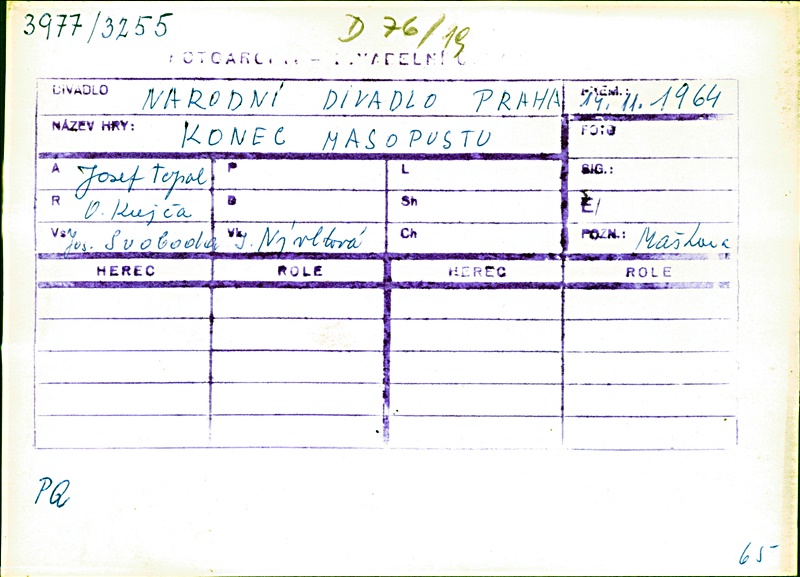 3977/3255 D 76/19
FOTOARCHIV – DIVADELNÍ
DIVADLO NARODNÍ DIVADLO PRAHA PREM.: 14. 11. 1964
NÁZEV HRY: KONEC MASOPUSTU FOTO
A Josef Topol P L SIG.:
R O. Krejča D Sh Č/
Vsv Jos. Svoboda Vk J. Nývltová Ch POZN.: Mašková
HEREC ROLE HEREC ROLE
PQ
65